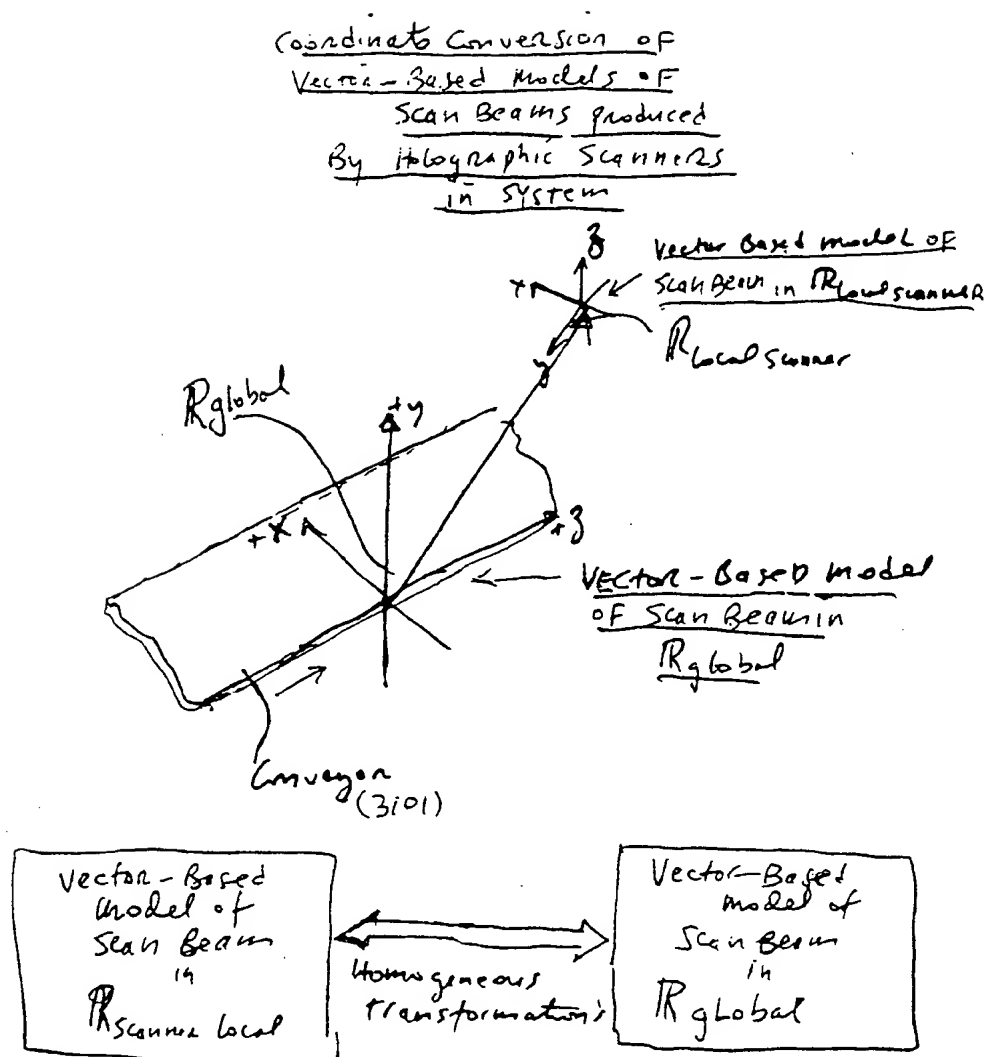 Coordinate Conversion of
Vector-Based Models of
Scan Beams produced
By Holographic Scanners
in System
z
Vector Based model of
Scan Beam in ℝlocal scanner
+x
ℝlocal scanner
y
ℝglobal
+y
+x
+z
VECTOR-BASED model
of Scan Beam in
ℝglobal
Conveyor
(3101)
Vector-Based
model of
Scan Beam
in
ℝscanner local
Homogeneous
transformation's
Vector-Based
model of
Scan Beam
in
ℝglobal